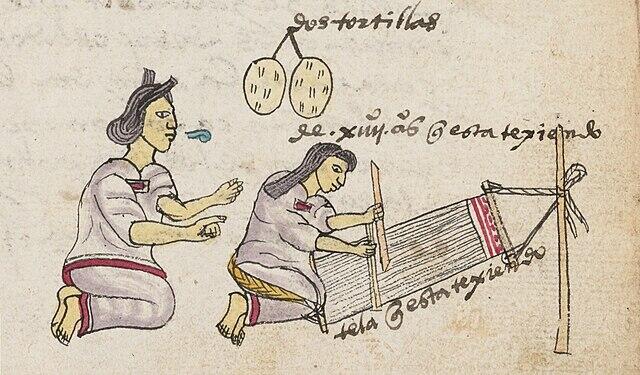 dos tortillas
de .xiiij. aºs q̃ esta texiendo
tela q̃ esta texiendo